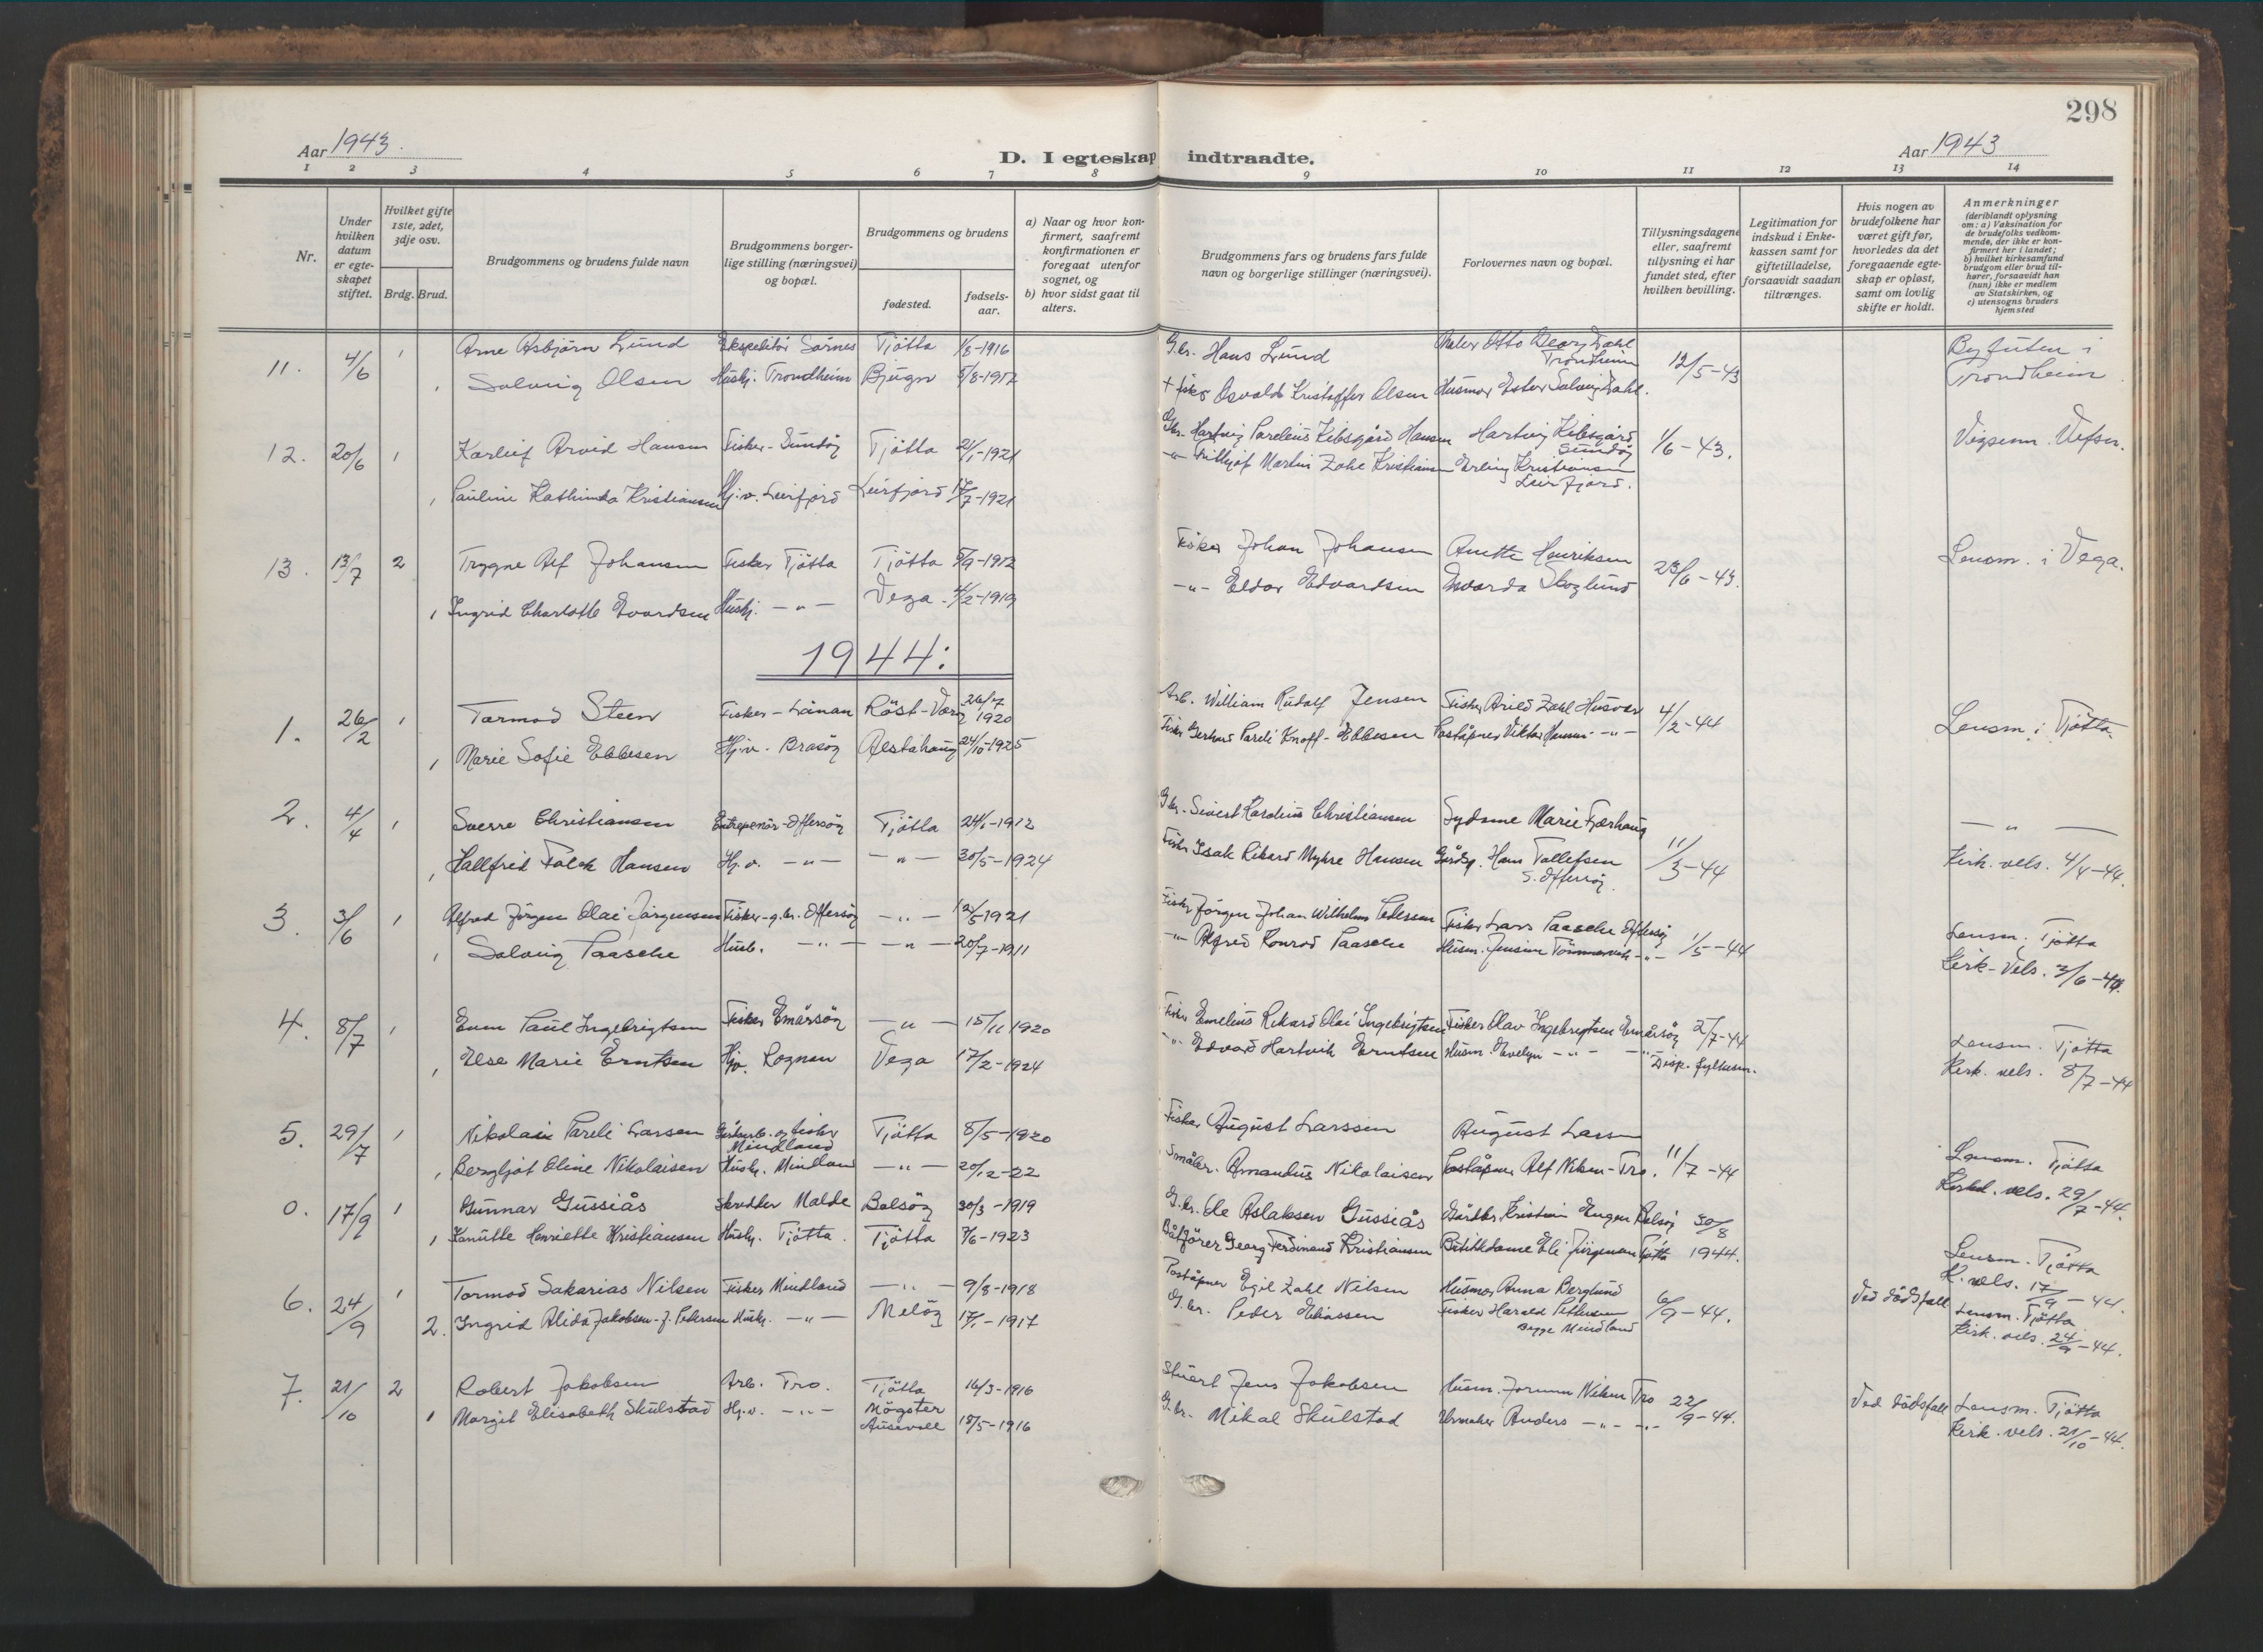 298
Aar 1943.
D. I egteskap indtraadte.
Aar 1943
1 2 3 4 5 6 7 8 9 10 11 12 13 14
Nr.
Under hvilken datum er egteskapet stiftet.
Hvilket gifte 1ste, 2det, 3dje osv.
Brdg. Brud.
Brudgommens og brudens fulde navn
Brudgommens borgerlige stilling (næringsvei) og bopæl.
Brudgommens og brudens
fødested.
fødselsaar.
a) Naar og hvor konfirmert, saafremt konfirmationen er foregaat utenfor sognet, og
b) hvor sidst gaat til alters.
Brudgommens fars og brudens fars fulde navn og borgerlige stillinger (næringsvei).
Forlovernes navn og bopæl.
Tillysningsdagene eller, saafremt tillysning ei har fundet sted, efter hvilken bevilling.
Legitimation for indskud i Enkekassen samt for giftetilladelse, forsaavidt saadan tiltrænges.
Hvis nogen av brudefolkene har været gift før, hvorledes da det foregaaende egteskap er opløst, samt om lovlig skifte er holdt.
Anmerkninger (deriblandt oplysning om: a) Vaksination for de brudefolks vedkommende, der ikke er konfirmert her i landet; b) hvilket kirkesamfund brudgom eller brud tilhører, forsaavidt han (hun) ikke er medlem av Statskirken, og c) utensogns bruders hjemsted
11. 4/6 1 Arne Asbjørn Lund Ekspeditør Tjøtta 1/8-1916 G.br. Hans Lund Otto Georg Dahl Trondheim 12/5-43 Byfuten i Trondheim
1 Solveig Olsen Hushj. Trondheim Bjugn 5/8-1912 + fisker Osvald Kristoffer Olsen Husmor Ester Solveig Dahl.
12. 20/6 1 Karleif Arvid Hansen Fisker - Sundøy Tjøtta 21/1-1921 Gbr. Hartvig Parelius Kibsgård Hansen Hartvig Kibsgård Sundøy 1/6-43. Vigsenn. Vefsn.
1 Pauline Kathinka Kristiansen Hj.v. Leirfjord Leirfjord 17/7-1921 -"- Frithjof Martin Zahl Kristiansen Erling Kristiansen Leirfjord.
13. 13/7 2 Trygve Alf Johansen Fisker Tjøtta Tjøtta 5/9-1912 Fisker Johan Johansen Anette Henriksen 23/6-43. Lensm. i Vega.
1 Ingrid Charlotte Edvardsen Hushj. -"- Vega 4/2-1919 -"- Eldar Edvardsen Edvarda Skoglund
1944:
1. 26/2 1 Tormod Steen Fisker - Lånan Røst-Værøy 26/7 1920 Arb. William Rudolf Jensen Fisker Arild Zahl Husvær 4/2-44 Lensm. i Tjøtta.
1 Marie Sofie Ebbesen Hj.v. Brasøy Alstahaug 24/10-1925 Fisker Gerhard Pareli Knoff-Ebbesen Poståpner Viktor Hansen -"-
2. 4/4 1 Sverre Christiansen Entreprenør-Offersøy Tjøtta 24/1-1912 Gbr. Sivert Karolius Christiansen Sydame Marie Fjærhaug 11/3-44 — " —
1 Hallfrid Falch Hansen Hj.v. -"- -"- 30/5-1924 Fisker Isak Rikard Myhre Hansen Gårdbr. Hans Tollefsen S. Offersøy. Kirk. vels. 4/4-44.
3. 3/6 1 Alfred Jørgen Olai Jørgensen Fisker-g.br. Offersøy -"- 12/5-1921 Fisker Jørgen Johan Wilhelm Pedersen Fisker Lars Paasche Offersøy 1/5-44 Lensm. Tjøtta
1 Solveig Paasche Husb. -"- -"- 20/7-1911 -"- Alfred Konrad Paasche Husm. Jensine Tømmervik -"- Kirk-Vels. 3/6-44.
4. 8/7 1 Even Paul Ingebrigtsen Fisker Emårsøy -"- 15/11 1920 Fisker Emelius Rikard Olai Ingebrigtsen Fisker Olav Ingebrigtsen Emårsøy 2/7-44 Lensm. Tjøtta
1 Else Marie Erntsen Hjv. Rognan Vega 17/2-1924 -"- Edvard Hartvik Erntsen Husm. Evelyn -"- -"- Disp. fylkesm. Kirk. vels. 8/7-44
5. 29/7 1 Nikolai Pareli Larsen Gårdsarb. og fisker Mindland Tjøtta 8/5-1920 Fisker August Larssen August Larsen 11/7-44 Lensm. Tjøtta
1 Bergljot Oline Nikolaisen Hushj. Mindland -"- 20/12-22 Småbr. Amandus Nikolaisen Poståpner Alf Nilsen-Tro. Kirkel. vels. 29/7-44.
0. 17/9 1 Gunnar Gussiås Skredder Molde Bolsøy 30/3-1919 G.br. Ole Aslaksen Gussiås Gårdbr. Kristian Eugen Bolsøy 30/8 1944. Lensm. Tjøtta
1 Kanutte Henriette Kristiansen Hushj. Tjøtta. Tjøtta 7/6-1923 Båtfører Georg Ferdinand Kristiansen Butikkdame Eli Jørgensen Tjøtta K. vels. 17/9-44.
6. 24/9 1 Tormod Sakarias Nilsen Fisker Mindland -"- 9/8-1918 Poståpner Egil Zahl Nilsen Husmor Anna Berglund 6/9-44. Ved dødsfall Lensm. Tjøtta
2. Ingrid Alida Jakobsen-f. Pedersen Hushj. -"- Meløy 17/1-1917 G.br. Peder Eliassen Fisker Harald Pettersen Begge Mindland Kirk. vels. 24/9-44.
7. 21/10 2 Robert Jakobsen Arb. Tro. Tjøtta 16/3-1916 Stuert Jens Jakobsen Husm. Jorunn Nilsen Tro 22/9-44. Ved dødsfall Lensm. Tjøtta
1 Margit Elisabeth Skulstad Hj.v. -"- Møgster Austevoll 18/5-1916 G.br. Mikal Skulstad Urmaker Anders -"- -"- Kirk. vels. 21/10-44.